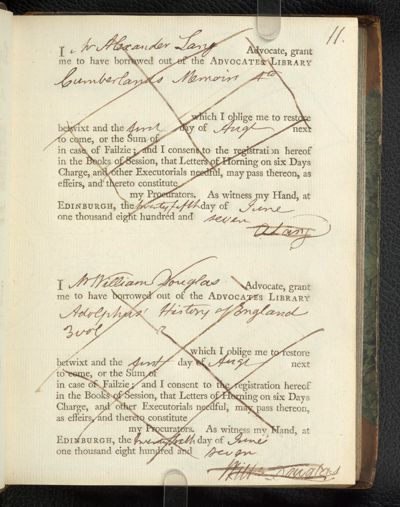 11.
I Mr Alexander Lang Advocate, grant
me to have borrowed out of the ADVOCATES LIBRARY
Cumberlands Memoirs 4to
which I oblige me to restore
betwixt and the first day of Augt next
to come, or the Sum of
in case of Failzie; and I consent to the registration hereof
in the Books of Session, that Letters of Horning on six Days
Charge, and other Executorials needful, may pass thereon, as
effeirs, and thereto constitute
my Procurators. As witness my Hand, at
EDINBURGH, the twenty fifth day of June
one thousand eight hundred and seven
A Lang
I Mr William Douglas Advocate, grant
me to have borrowed out of the ADVOCATES LIBRARY
Adolphus' History of England
3 vol
which I oblige me to restore
betwixt and the first day of Augt next
to come, or the Sum of
in case of Failzie; and I consent to the registration hereof
in the Books of Session, that Letters of Horning on six Days
Charge, and other Executorials needful, may pass thereon,
as effeirs, and thereto constitute
my Procurators. As witness my Hand, at
EDINBURGH, the day of June
one thousand eight hundred and seven